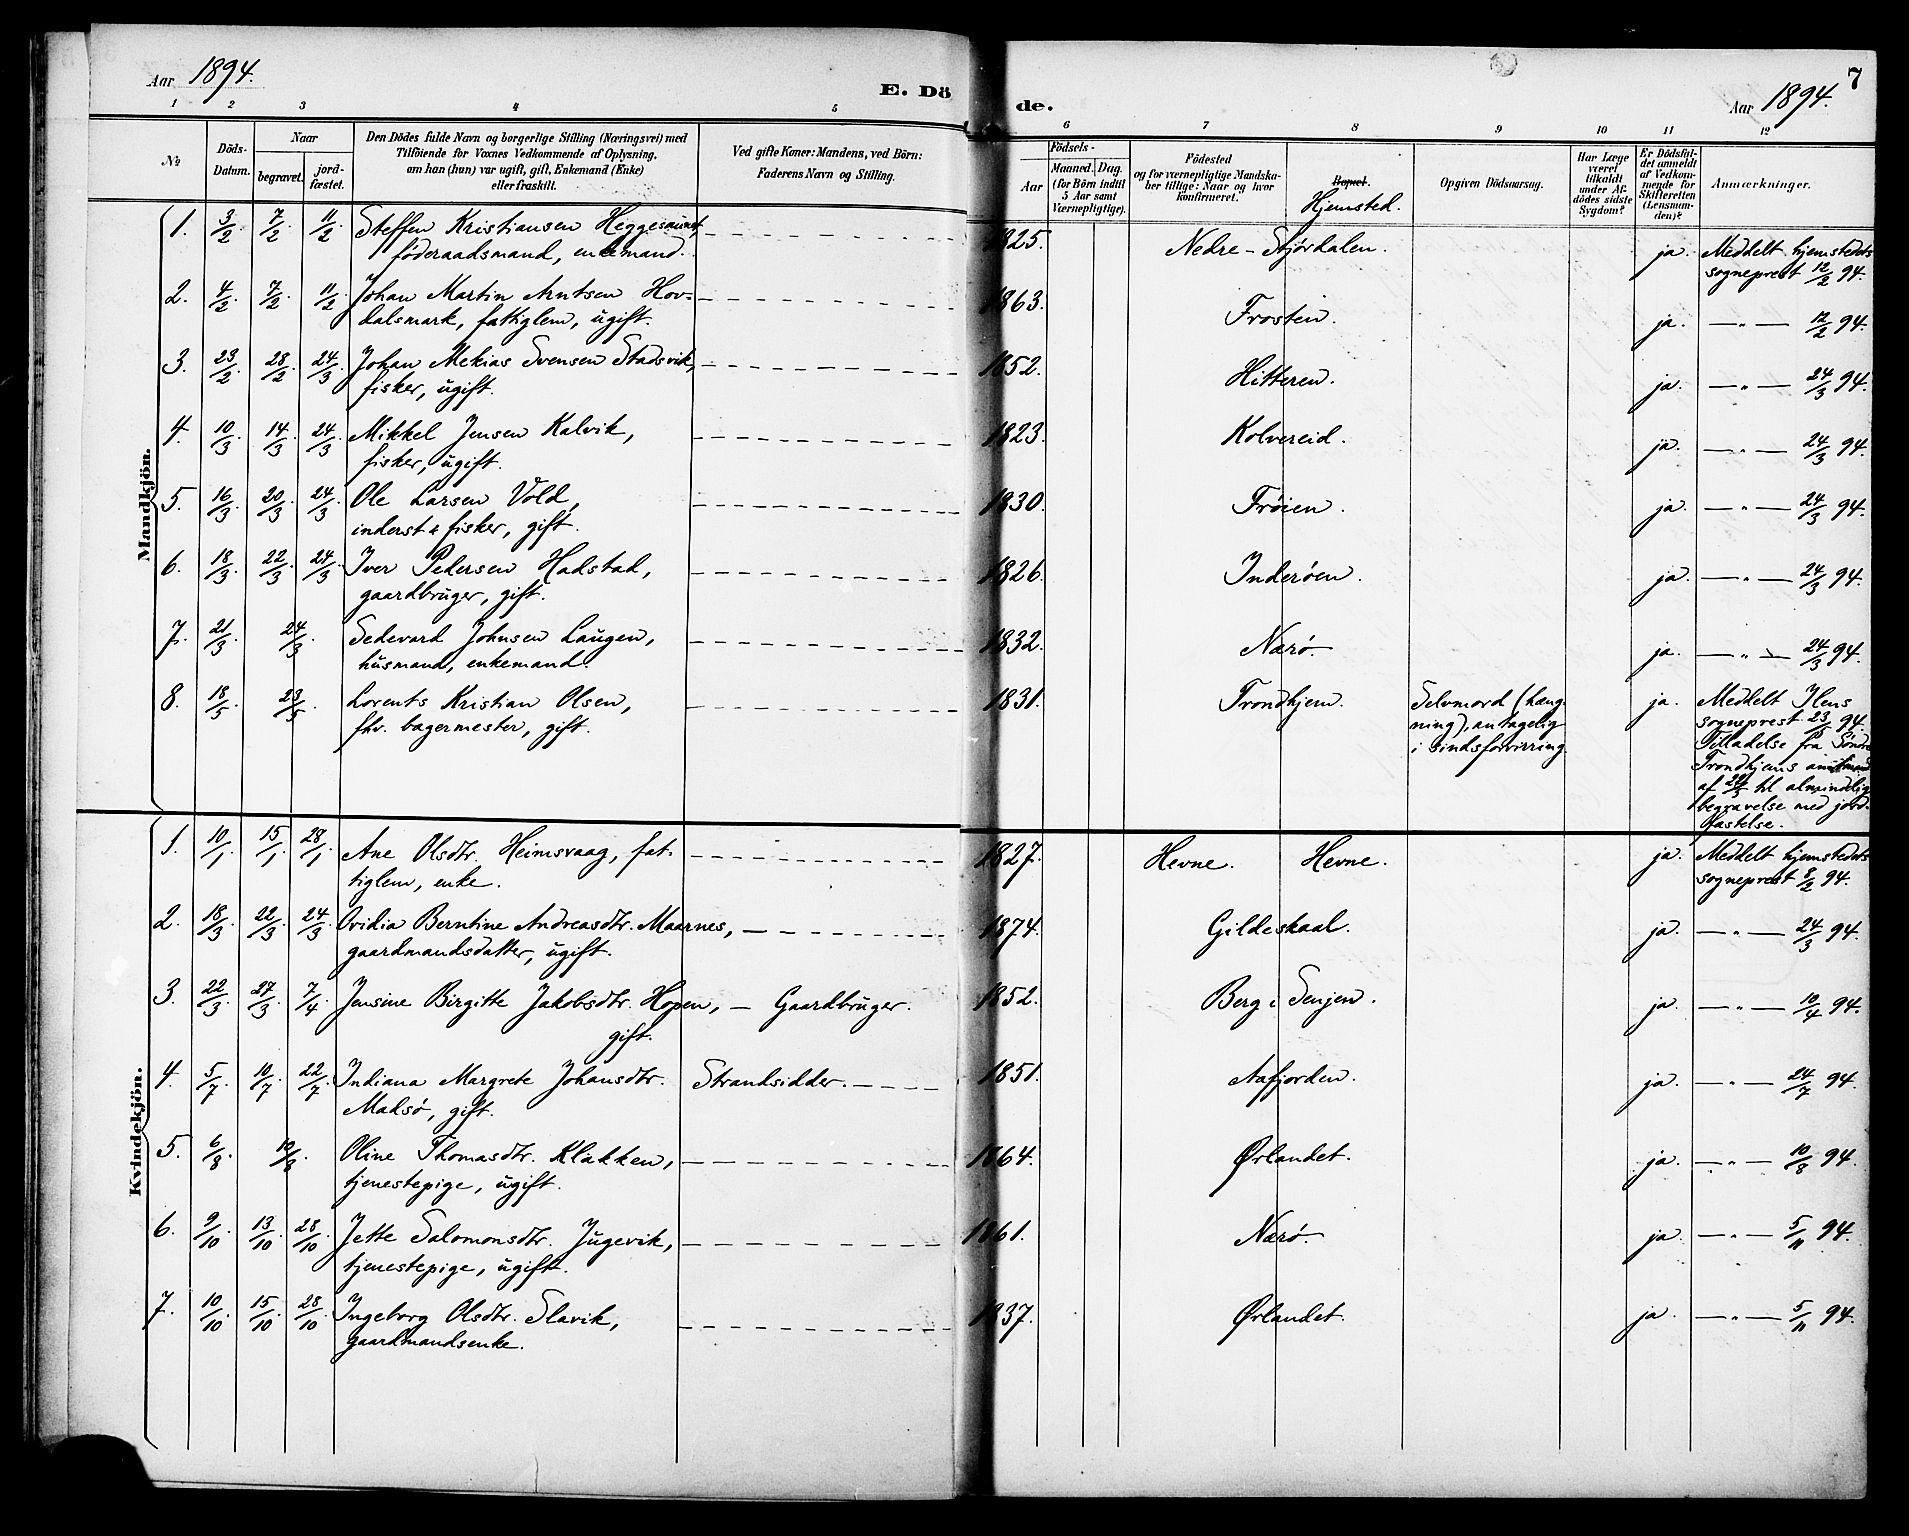 Aar 1894.
E. Dö
de.
7
Aar 1894.
1 2 3 4 5 6 7 8 9 10 11 12
№
Döds-
Datum.
Naar
begravet.
jord-
fæstet.
Den Dödes fulde Navn og borgerlige Stilling (Næringsvei) med
Tilföiende for Voxnes Vedkommende af Oplysning,
om han (hun) var ugift, gift, Enkemand (Enke)
eller fraskilt.
Ved gifte Koner: Mandens, ved Börn:
Faderens Navn og Stilling.
Födsels-
Aar
Maaned. Dag.
(for Börn indtil
5 Aar samt
Værnepligtige).
Födested
og for værnepligtige Mandska-
ber tillige: Naar og hvor
konfirmeret.
Bopæl.
Hjemsted.
Opgiven Dödsaarsag.
Har Læge
været
tilkaldt
under Af-
dödes sidste
Sygdom?
Er Dödsfal-
det anmeldt
af Vedkom-
mende for
Skifteretten
(Lensman-
den)?
Anmærkninger.
Mandkjön.
1. 3/2 7/2. 11/2 Steffen Kristiansen Heggesaunet 1825. Nedre-Stjørdalen. ja. Meddelt hjemstedets
föderaadsmand, enkemand. sogneprest 12/2 94.
2. 4/2 7/2. 11/2 Johan Martin Arntsen Hov- 1863. Frosten. ja. —„— 12/2 94.
dalsmark, fattiglem, ugift.
3. 23/2 28/2 24/3 Johan Mekias Svensen Stadsvik, 1852. Hitteren. ja. —„— 24/3 94.
fisker, ugift.
4. 10/3 14/3 24/3 Mikkel Jensen Kalvik, 1823. Kolvereid. ja. —„— 24/3 94.
fisker, ugift.
5. 16/3 20/3 24/3 Ole Larsen Vold, 1830. Frøien. ja. —„— 24/3 94.
inderst & fisker, gift.
6. 18/3 22/3 24/3 Iver Pedersen Hadstad, 1826. Inderøen. ja. —„— 24/3 94.
gaardbruger, gift.
7. 21/3 24/3. Sedevard Johnsen Laugen, 1832. Nærø. ja. —„— 24/3 94.
husmand, enkemand.
8. 18/5 23/5. Lorents Kristian Olsen, 1831. Trondhjem. Selvmord (hæng- ja. Meddelt Ilens
fhv. bagermester, gift. ning), antagelig sogneprest 23/5 94.
i sindsforvirring. Tilladelse fra Søndre
Trondhjems amtmand
af 22/5 til almindelig
begravelse med jord-
fæstelse.
Kvindekjön.
1. 10/1 15/1 28/1 Ane Olsdtr. Heimsvaag, fat- 1827. Hevne. Hevne. ja. Meddelt hjemstedets
tiglem, enke. sogneprest 8/2 94.
2. 18/3 22/3 24/3 Ovidia Berntine Andreasdtr. Maarnes, 1874. Gildeskaal. ja. —„— 24/3 94.
gaardmandsdatter, ugift.
3. 22/3 27/3 7/4 Jensine Birgitte Jakobsdtr. Hopen, — Gaardbruger. 1852. Berg i Senjen. ja. —„— 10/4 94.
gift.
4. 5/7 10/7 22/7 Indiana Margrete Johansdtr. Strandsidder. 1851. Aafjorden. ja. —„— 24/7 94.
Maksø, gift.
5. 6/8 10/8. Oline Thomasdtr. Klakken, 1864. Ørlandet. ja. —„— 10/8 94.
tjenestepige, ugift.
6. 9/10 13/10 28/10 Jette Salomonsdtr. Jugevik, 1861. Nærø. ja. —„— 5/11 94.
tjenestepige, ugift.
7. 10/10 15/10 28/10 Ingeborg Olsdtr. Slavik, 1837. Ørlandet. ja. —„— 5/11 94.
gaardmandsenke.